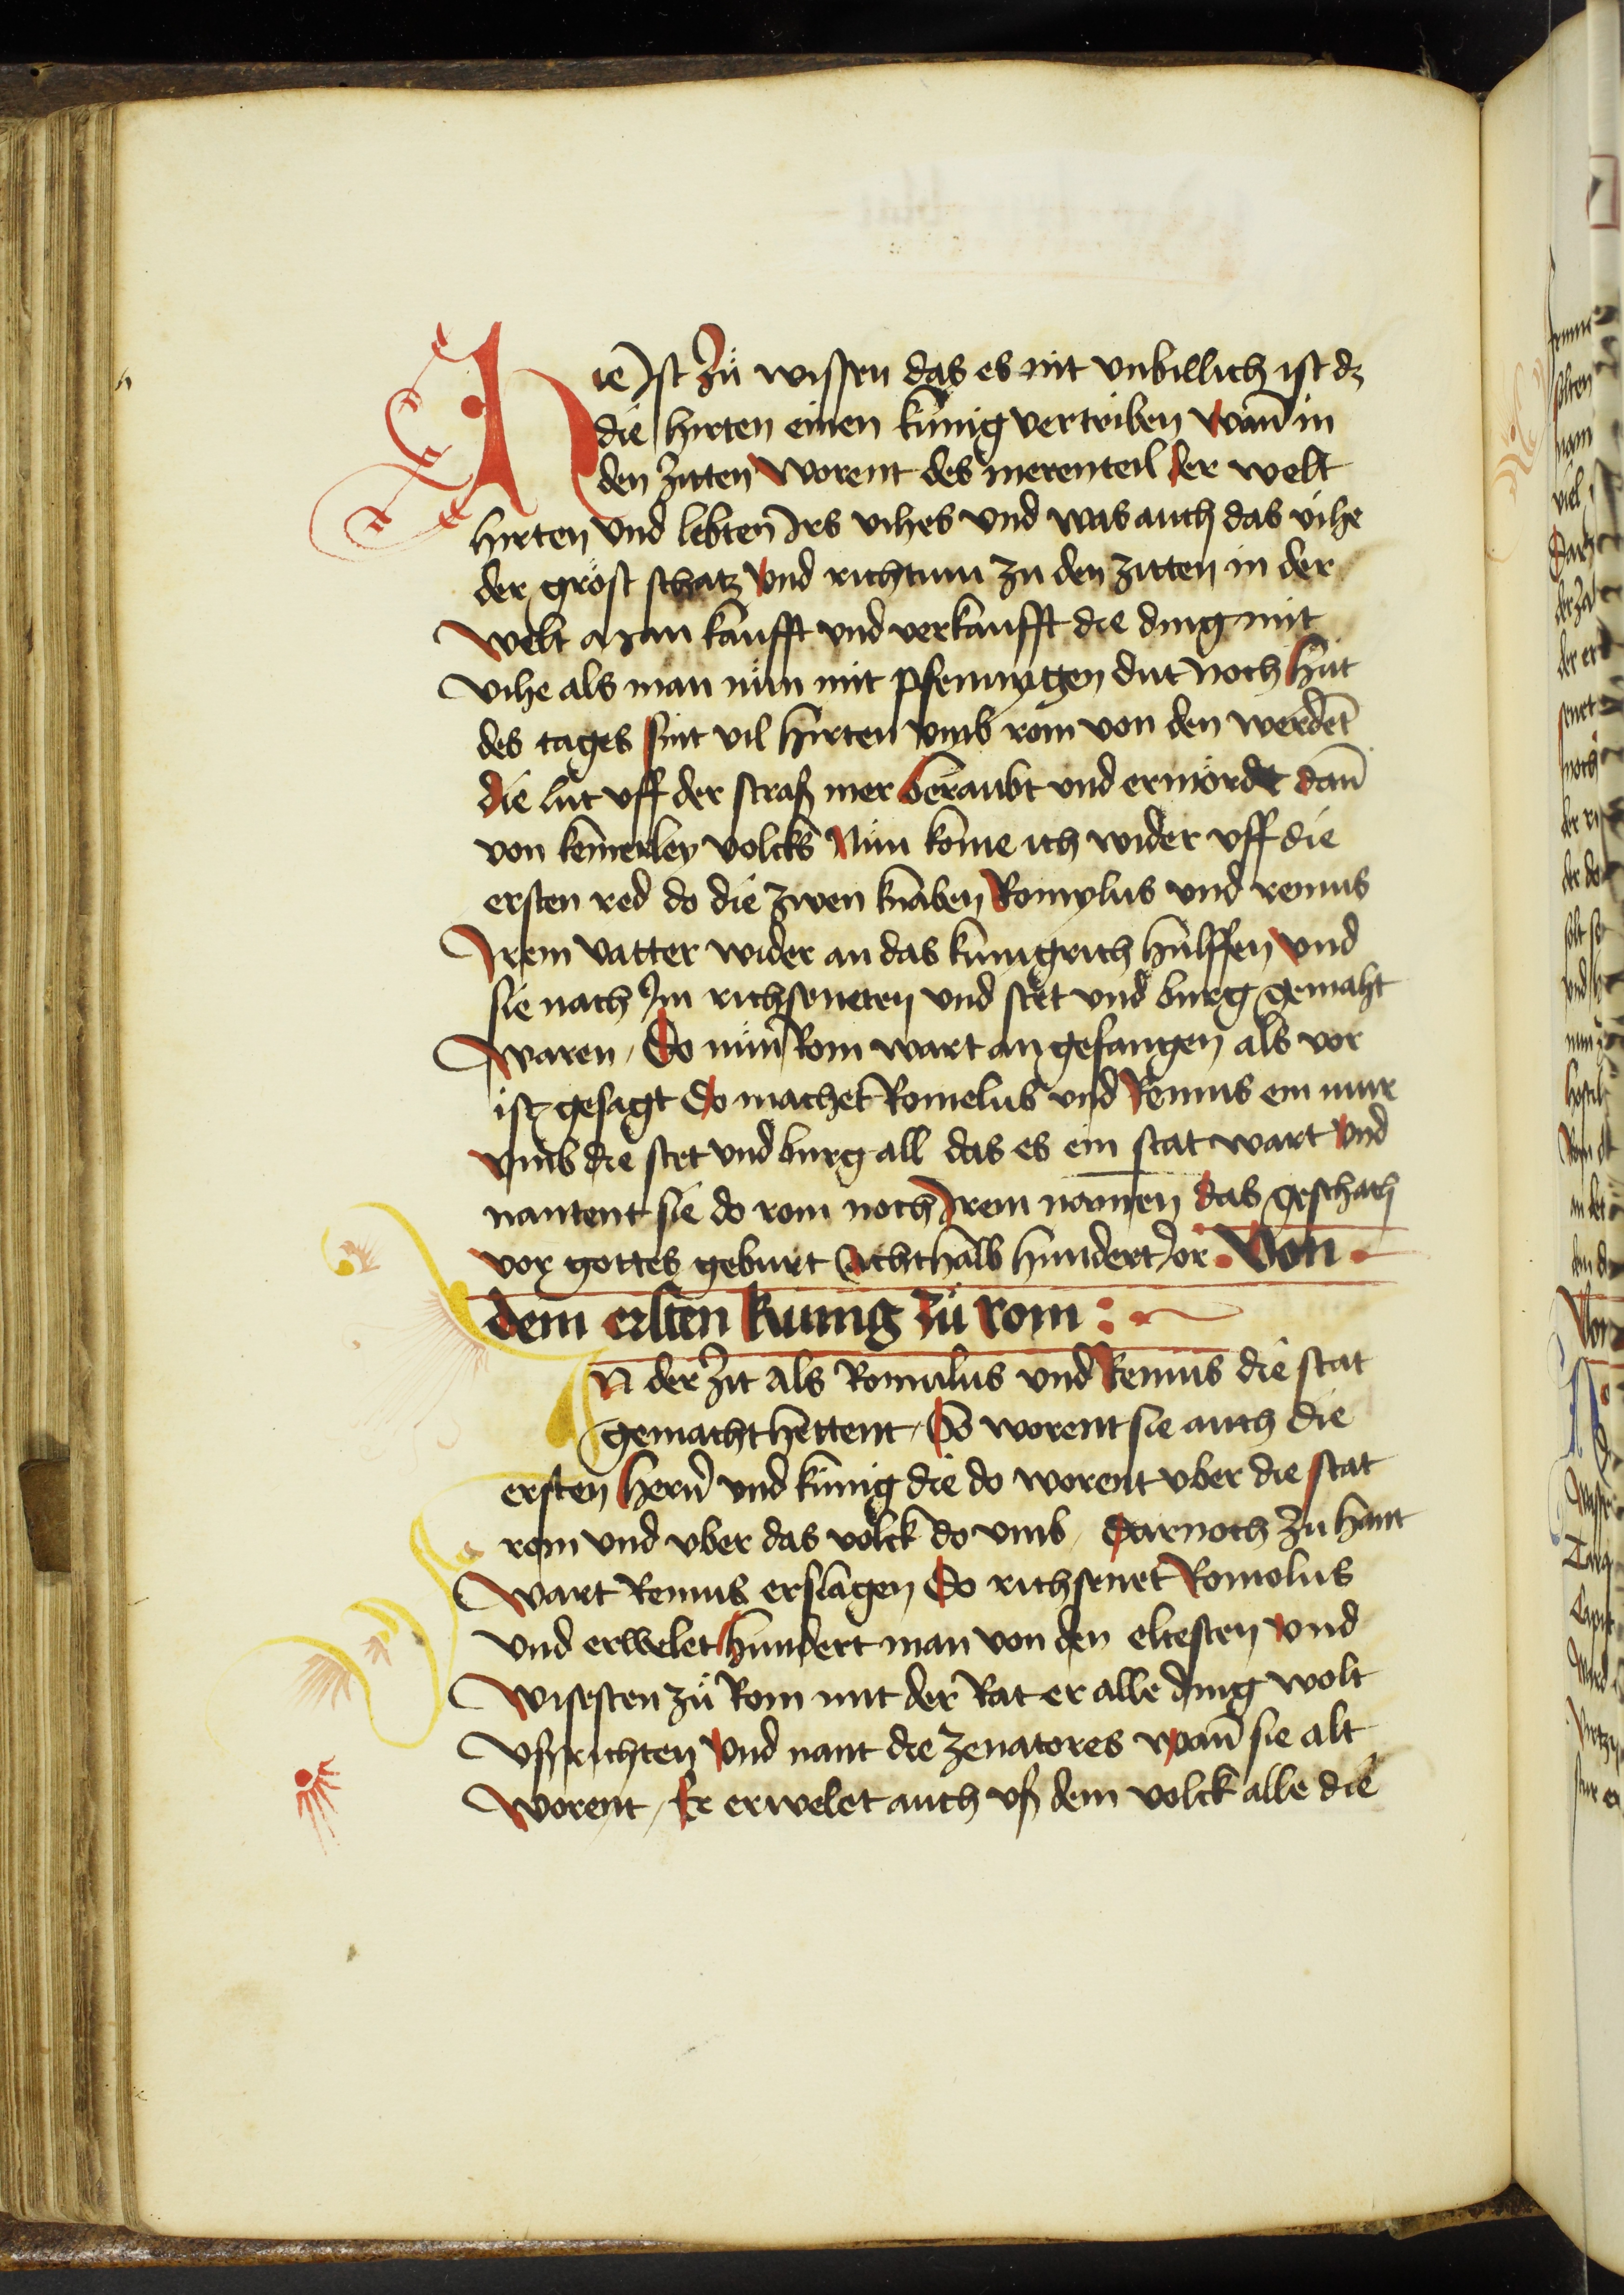 Hie Ist Zů wissen das es nit vnbillich ist dz
die hirten einen kúnig vertriben wañ in
den Zitten worent des merenteil der welt
hirten vnd lebten Irs vihes vnd was auch das vihe
der gröst schatz vnd richtum zu den zitten in der
welt Man kaufft vnd verkaufft die ding mit
vihe als man nün mit pfennygen dut Noch hút
des tages sint vil hirten vmb rom von den werdēt
die lút vff der straß mer beraubt vnd ermórdt dañ
von keinerley volcks Nün kome ich wider vff die
ersten red do die zwen knaben Romylus vnd remus
Irem vatter wider an das kunigrich hulffen vnd
sie nach Im richseneten vnd stet vnd burg gemaht
waren / Do nün Rom wart an gefangen als vor
ist gesagt Do machet Romelus vnd Remus ein mur
vmb die stet vnd burg all das es ein stat wart vnd
nantent sie do rom noch Irem nammen das geschach
vor gottes geburt Achthalb hundert Jor . Von .
dem ersten kunig zů rom :
In der Zit als Romulus vnd Remus die stat
gemacht hettent / So worent sie auch die
ersten herñ vnd kúnig die do worent vber die stat
rom vnd vber das volck do vmb / darnoch zu hant
wart Remus erslagen Do richsenet Romolus
vnd erwelet hundert man von den eltesten vnd
wisesten zů Rom mit der Rat er alle ding wolt
vßrichten vnd nant die zenatores wañ sie alt
worent / Er erwelet auch vß dem volck alle die